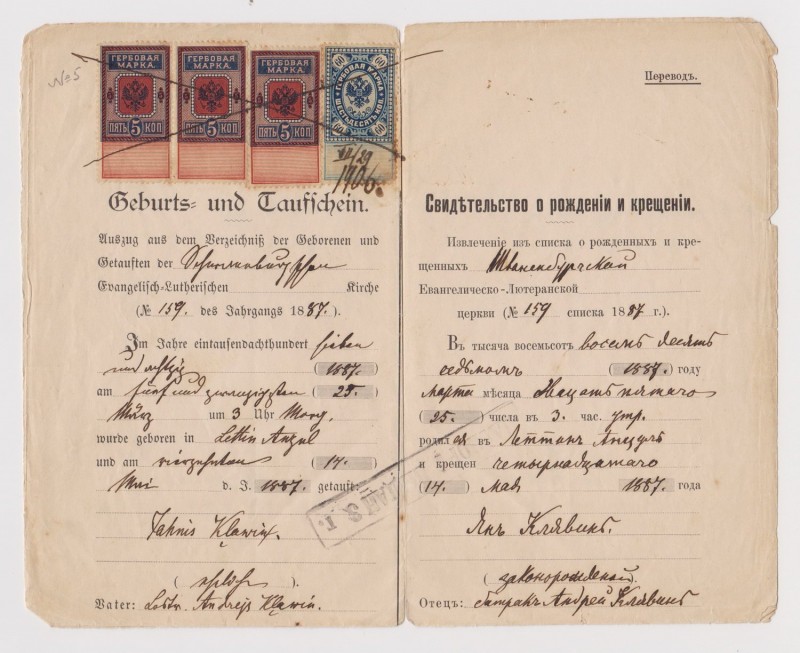 № 5
ГЕРБОВАЯ МАРКА
ПЯТЬ 5 КОП
ГЕРБОВАЯ МАРКА
ПЯТЬ 5 КОП
ГЕРБОВАЯ МАРКА
ПЯТЬ 5 КОП
60 60
ГЕРБОВАЯ МАРКА
ШЕСТЬДЕСЯТЪ КОП.
60 60
VII/29
1906.
Geburts- und Taufschein.
Auszug aus dem Verzeichniß der Geborenen und
Getauften der
Evangelisch-Lutherischen Kirche
(№ 159. des Jahrgangs 1887.).
Im Jahre eintausendachthundert sieben
und achtzig (1887.)
am fünf und zwanzigsten (25.)
März um 3 Uhr Morg.
wurde geboren in Lettin Anzul
und am vierzehnten (14.)
Mai d. J. 1887 getauft:
Jahnis Kļawiņ.
(ehelich).
Vater: Andrejs Kļawiņ.
Переводъ.
Свидѣтельство о рожденіи и крещеніи.
Извлеченіе изъ списка о рожденныхъ и кре-
щенныхъ Шваненбургской
Евангелическо-Лютеранской
церкви (№ 159 списка 1887 г.).
Въ тысяча восемьсотъ восемь десятъ
седьмомъ (1887.) году
марта мѣсяца двацать пятаго
(25.) числа въ 3. час. утр.
родился въ Леттинъ Анцулъ
и крещен четырнадцатаго
(14.) мая 1887. года
Янъ Клявинъ.
(законорожденый).
Отецъ: батракъ Андрей Клявинъ